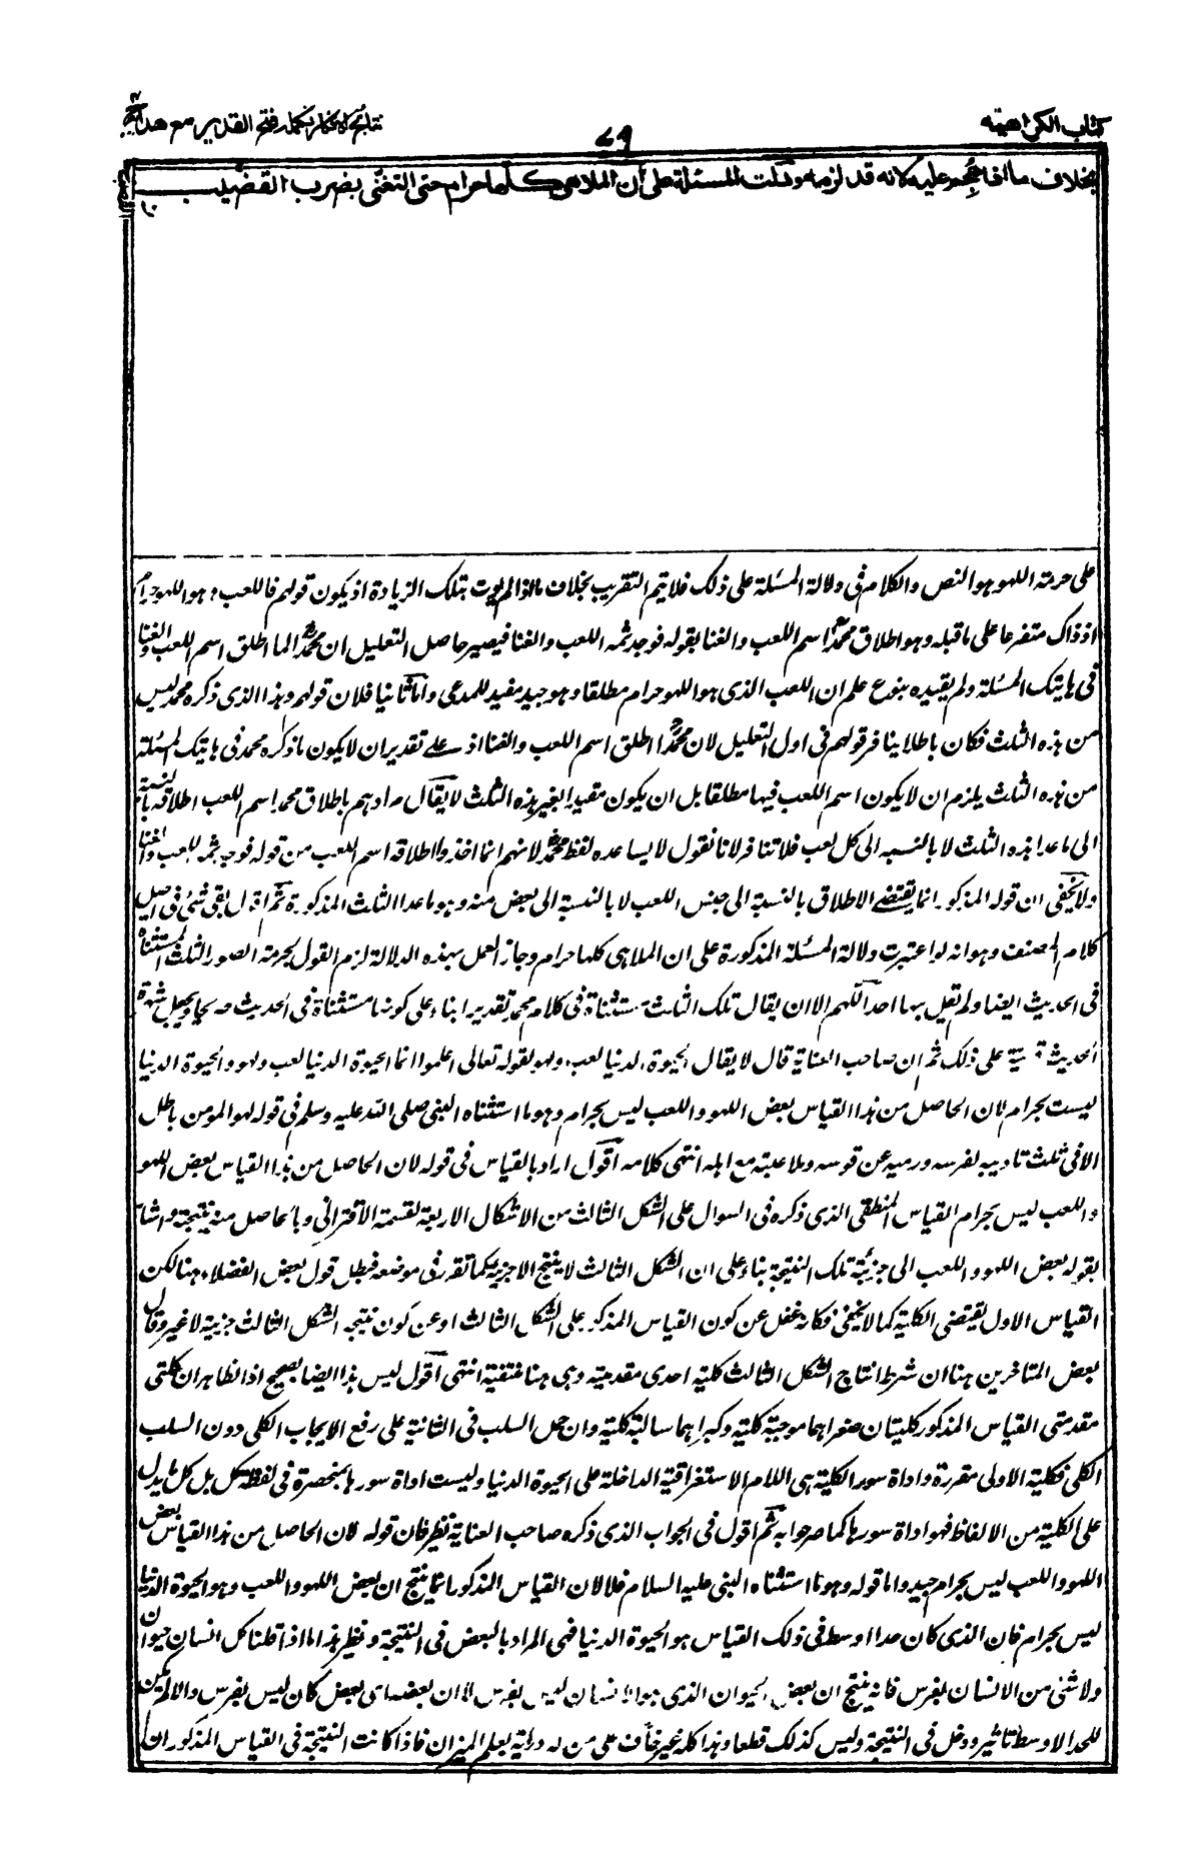 كتاب الكراهية
٧٩
نتائج الافكار تكملہ فتح القدير مع هدايہ
بخلاف ما اذا هجم عليه لانه قد لزمه ودلت المسئلة على أن الملاهي كلها حرام حتى التغنّى بضرب القضيب
على حرمة اللهو هو النص والكلام فى دلالة المسئلة على ذلك فلا يتم التقريب بخلاف ما اذا لم يوت بتلك الزيادة اذ يكون قولهم فاللعب وهو اللهو حرام
اذ ذاك متفرعا على ما قبله وهو اطلاق محمد اسم اللعب والغنا بقوله فوجد ثمه اللعب والغنا فيصير حاصل التعليل ان محمدا لما اطلق اسم اللعب والغنا
فى هاتيك المسئلة ولم يقيده بنوع علم ان اللعب الذى هو اللهو حرام مطلقا وهو جيد مفيد للمدعى واما ثانيا فلان قولهم وهذا الذى ذكره محمد ليس
من هذه الثلث فكان باطلا ينافر قولهم فى اول التعليل لان محمدا اطلق اسم اللعب والغنا اذ على تقدير ان لا يكون ما ذكره محمد فى هاتيك المسئلة
من هذه الثلث يلزم ان لا يكون اسم اللعب فيها مطلقا بل ان يكون مقيدا بغير هذه الثلث لا يقال مرادهم باطلاق محمد اسم اللعب اطلاقه بالنسبة
الى ما عدا هذه الثلث لا بالنسبه الى كل لعب فلا تنافر لانا نقول لا يساعده لفظ محمد لانهم انما اخذوا اطلاقه اسم اللعب من قوله فوجد ثمه اللعب والغنا
ولا يخفى ان قوله المذكور انما يقتضى الاطلاق بالنسبة الى جنس اللعب لا بالنسبة الى بعض منه وهو ما عدا الثلث المذكورة ثم اقول بقى شئى فى اصل
كلام المصنف وهو انه لو اعتبرت دلالة المسئلة المذكورة على ان الملاهى كلها حرام وجاز العمل بهذه الدلالة لزم القول بحرمة الصور الثلث المستثناة
فى الحديث ايضا ولم يقل بها احد اللهم الا ان يقال تلك الثلث مستثناة فى كلام محمد تقديرا بناء على كونها مستثناة فى الحديث صريحا ويجعل شهرة
الحديث قرينة على ذلك ثم ان صاحب العناية قال لا يقال الحيوة الدنيا لعب ولهو لقوله تعالى اعلموا انما الحيوة الدنيا لعب ولهو والحيوة الدنيا
ليست بحرام لان الحاصل من هذا القياس بعض اللهو واللعب ليس بحرام وهو ما استثناه النبى صلى الله عليه وسلم فى قوله لهو المومن باطل
الا فى ثلث تاديبه لفرسه ورميه عن قوسه وملاعبته مع اهله انتهى كلامه اقول اراد بالقياس فى قوله لان الحاصل من هذا القياس بعض اللهو
واللعب ليس بحرام القياس المنطقى الذى ذكره فى السوال على الشكل الثالث من الاشكال الاربعة لقسمة الاقترانى وبالحاصل منه نتيجته واشار
بقوله بعض اللهو واللعب الى جزئية تلك النتيجة بناء على ان الشكل الثالث لا ينتج الا جزئية كما تقرر فى موضعه فبطل قول بعض الفضلاء هنا لكن
القياس الاول يقتضى الكلية كما لا يخفى فكانه غفل عن كون القياس المذكور على الشكل الثالث او عن كون نتيجة الشكل الثالث جزئية لا غير وقال
بعض المتاخرين هنا ان شرط انتاج الشكل الثالث كلية احدى مقدمتيه وهى هنا منتفية انتهى اقول ليس هذا ايضا بصحيح اذ الظاهر ان كلتى
مقدمتى القياس المذكور كليتان صغراهما موجبة كلية وكبراهما سالبة كلية وان حمل السلب فى الثانية على رفع الايجاب الكلى دون السلب
الكلى فكلية الاولى مقررة واداة سور الكلية هى اللام الاستغراقية الداخلة على الحيوة الدنيا وليست اداة سورها بمنحصرة فى لفظة كل بل كل ما يدل
على الكلية من الالفاظ فهو اداة سورها كما صرحوا به ثم اقول فى الجواب الذى ذكره صاحب العناية نظر فان قوله لان الحاصل من هذا القياس بعض
اللهو واللعب ليس بحرام جيد واما قوله وهو ما استثناه النبى عليه السلام فلا لان القياس المذكور انما ينتج ان بعض اللهو واللعب وهو الحيوة الدنيا
ليس بحرام فان الذى كان حدا اوسط فى ذلك القياس هو الحيوة الدنيا فهى المراد بالبعض فى النتيجة ونظير هذا ما اذا قلنا كل انسان حيوان
ولا شئى من الانسان بفرس فانه ينتج ان بعض الحيوان الذى هو الانسان ليس بفرس لا ان بعضه اى بعض كان ليس بفرس والا لم يكن
للحد الاوسط تاثير ودخل فى النتيجة وليس كذلك قطعا وهذا كله غير خاف على من له دراية بعلم الميزان فاذا كانت النتيجة فى القياس المذكور ان